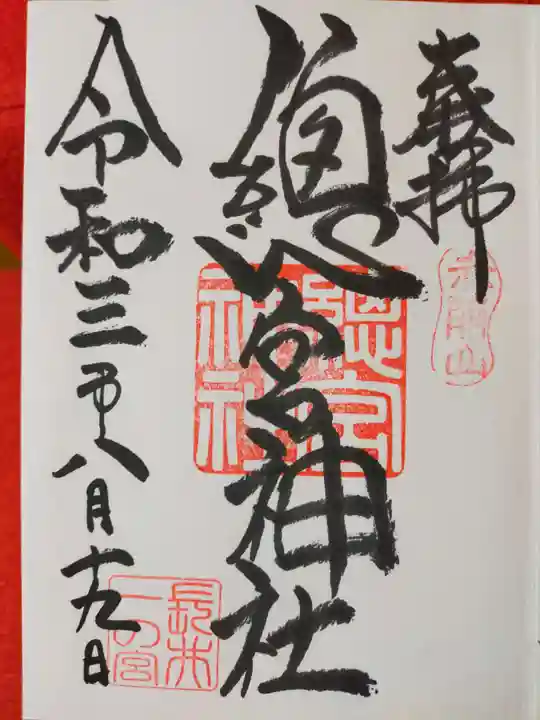 奉拝
赤湯山
總宮神社
總宮
神社
令和三年八月十九日
長井
一の宮